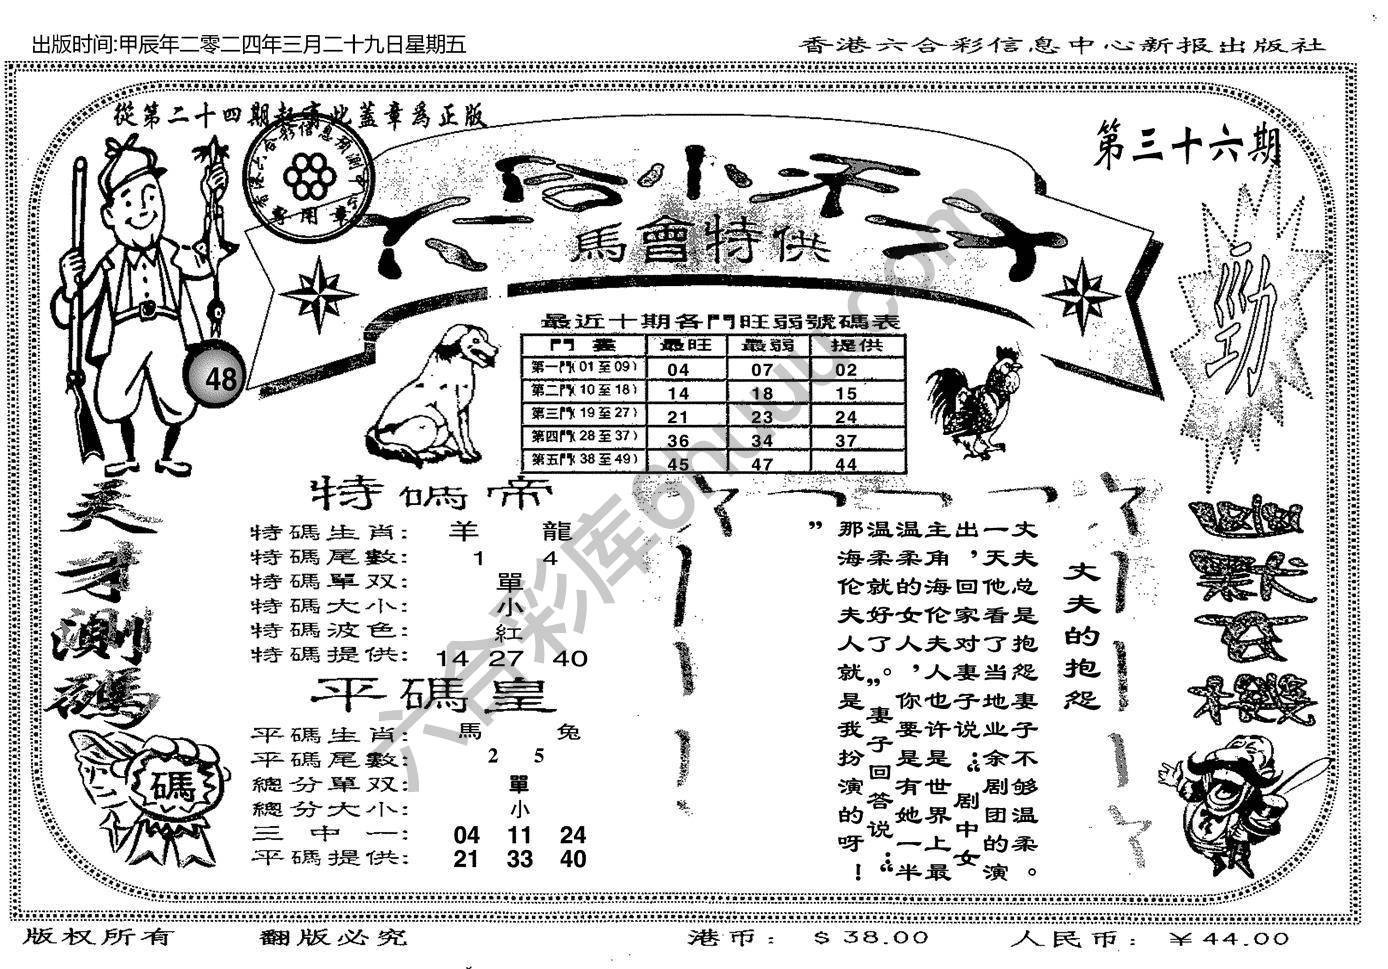 出版时间:甲辰年二零二四年三月二十九日星期五
香港六合彩信息中心新报出版社
從第二十四期起寄此蓋章爲正版
第三十六期
六合小子
馬會特供
勁
48
最近十期各門旺弱號碼表
門 最旺 最弱 提供
第一門(01至09) 04 07 02
第二門(10至18) 14 18 15
第三門(19至27) 21 23 24
第四門(28至37) 36 34 37
第五門(38至49) 45 47 44
天才測碼
碼
特碼帝
特碼生肖: 羊 龍
特碼尾數: 1 4
特碼單双: 單
特碼大小: 小
特碼波色: 紅
特碼提供: 14 27 40
平碼皇
平碼生肖: 馬 兔
平碼尾數: 2 5
總分單双: 單
總分大小: 小
三中一: 04 11 24
平碼提供: 21 33 40
丈夫的抱怨
丈夫总是抱怨妻子不够温柔。
一天他看了当地业余剧团的演
出，回家对妻子说：“剧中女
主角海伦夫人，也许是世界上最
温柔的女人，你要是有她一半
温柔就好了。”妻子回答说：“
那海伦夫人就是我扮演的呀！
”
六合彩库6huuu.com
版权所有
翻版必究
港币：$38.00
人民币：￥44.00